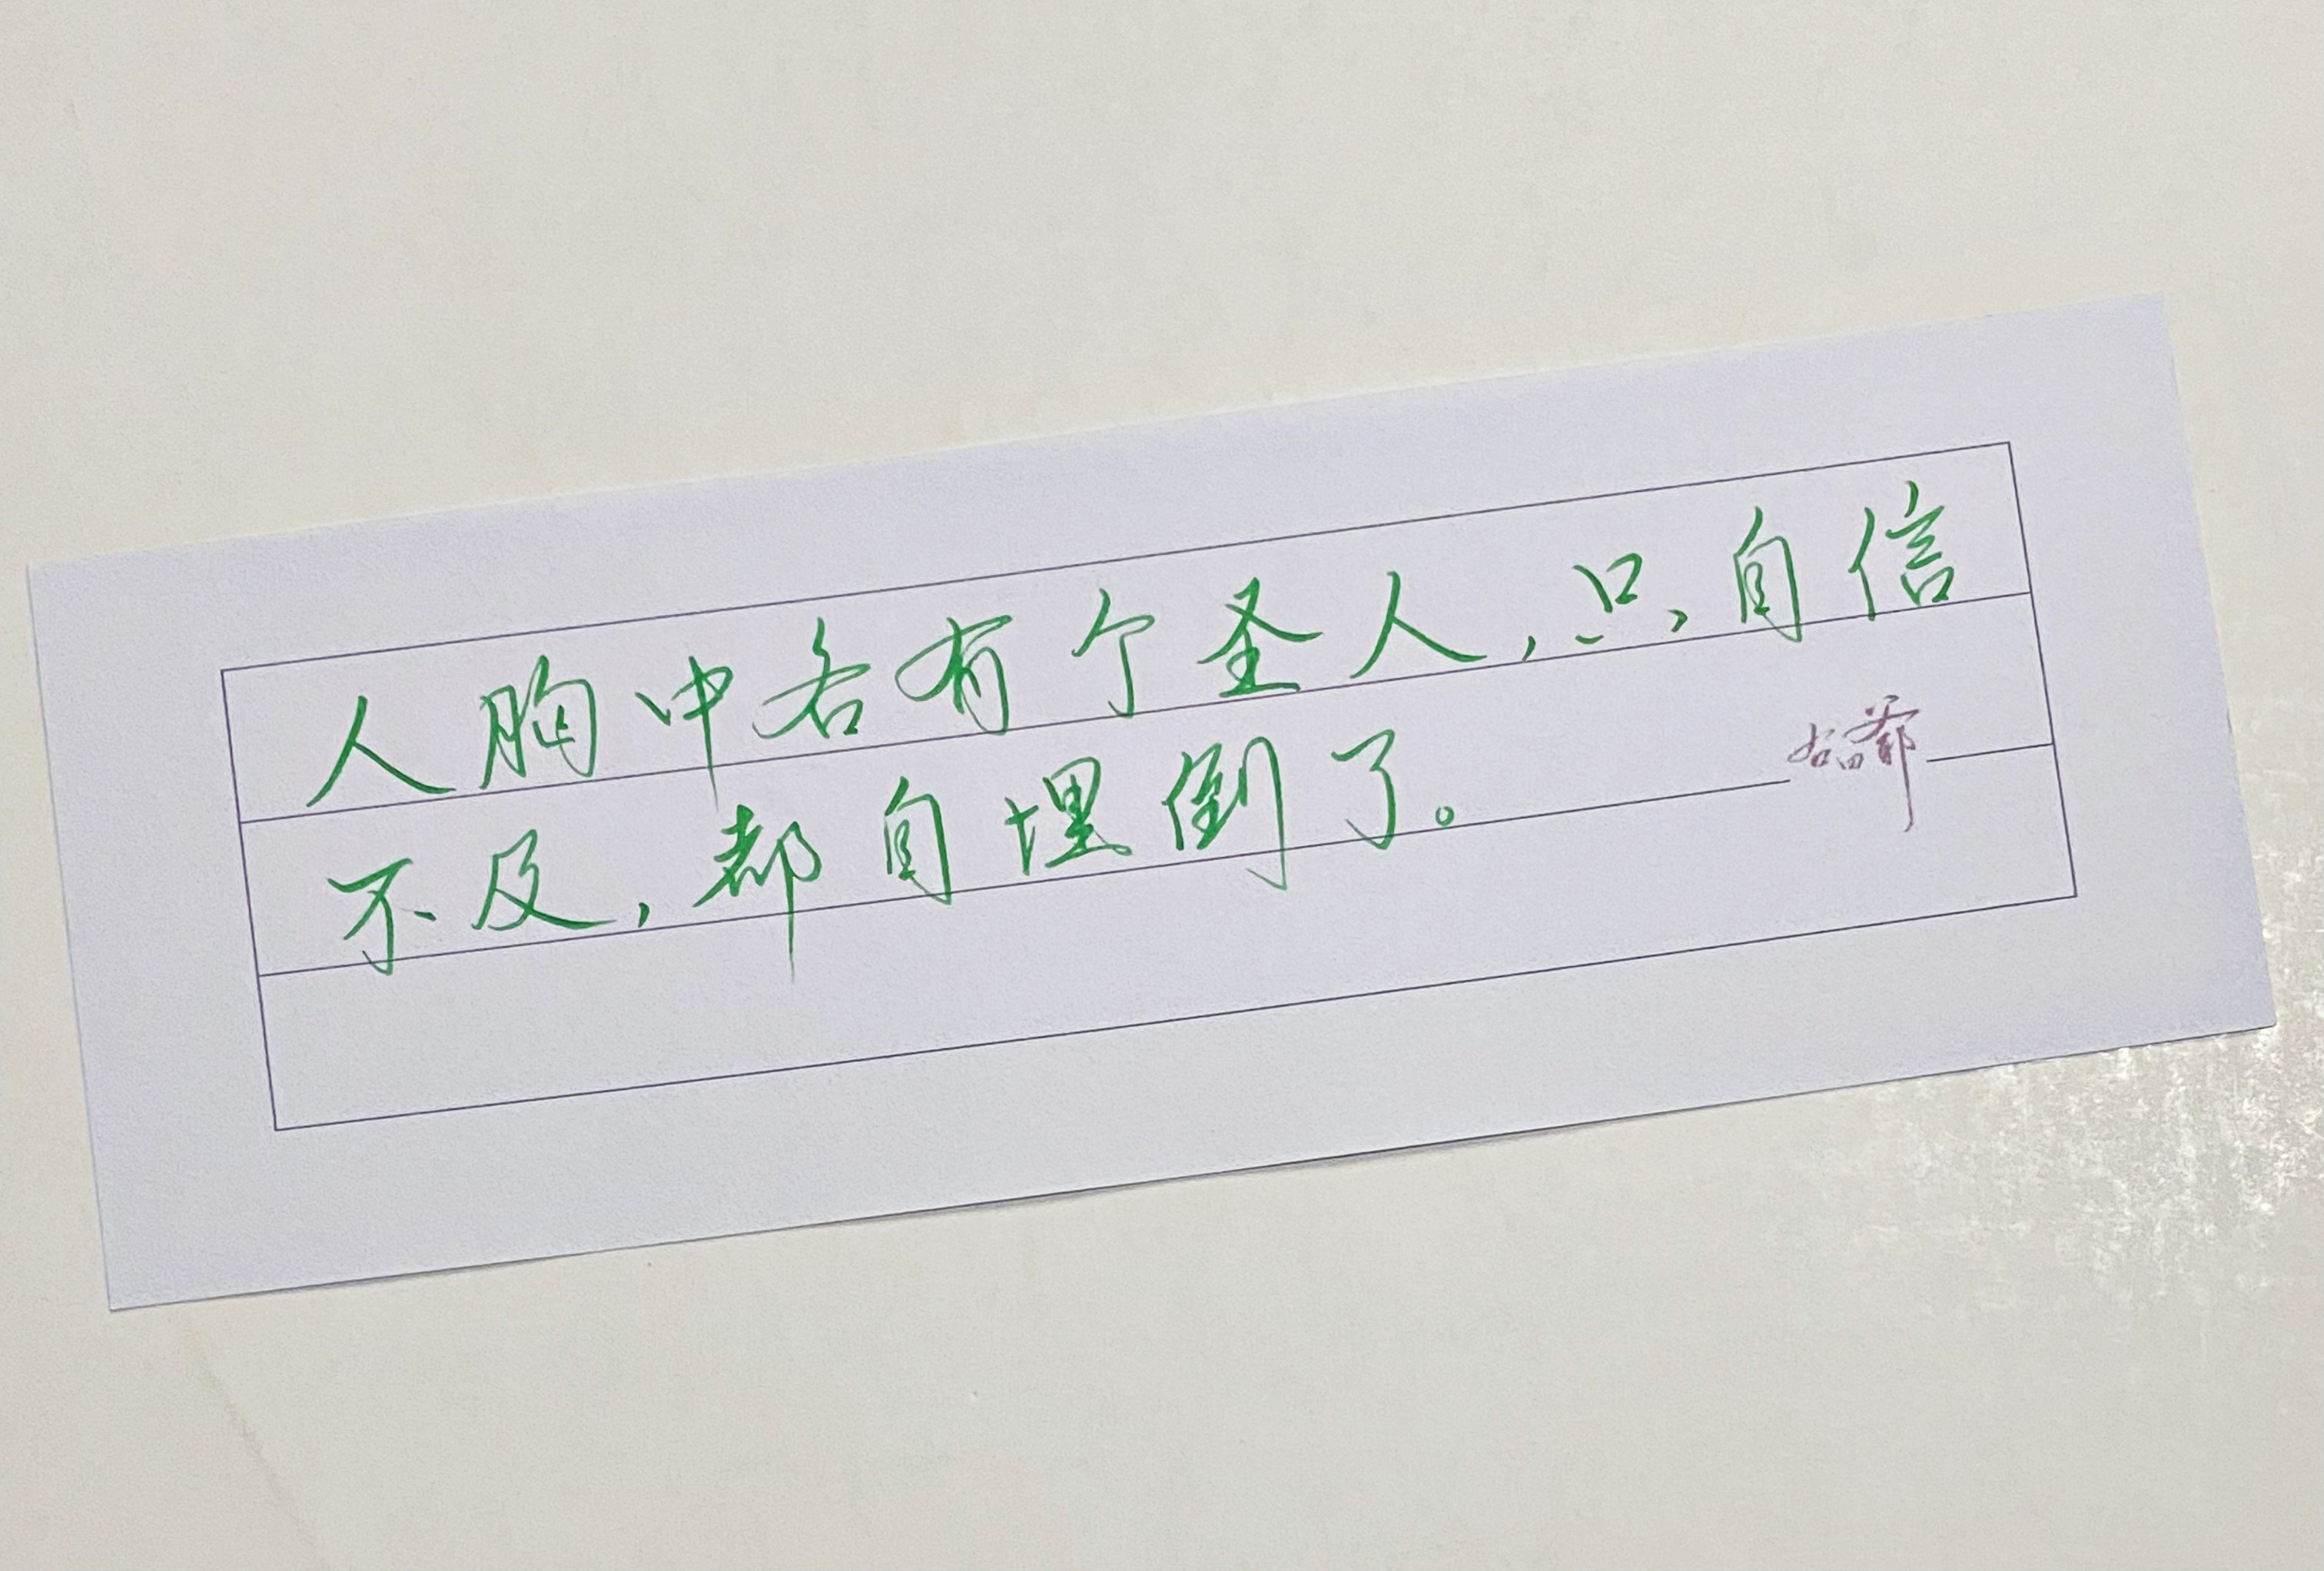 人胸中各有个圣人，只自信
不及，都自埋倒了。